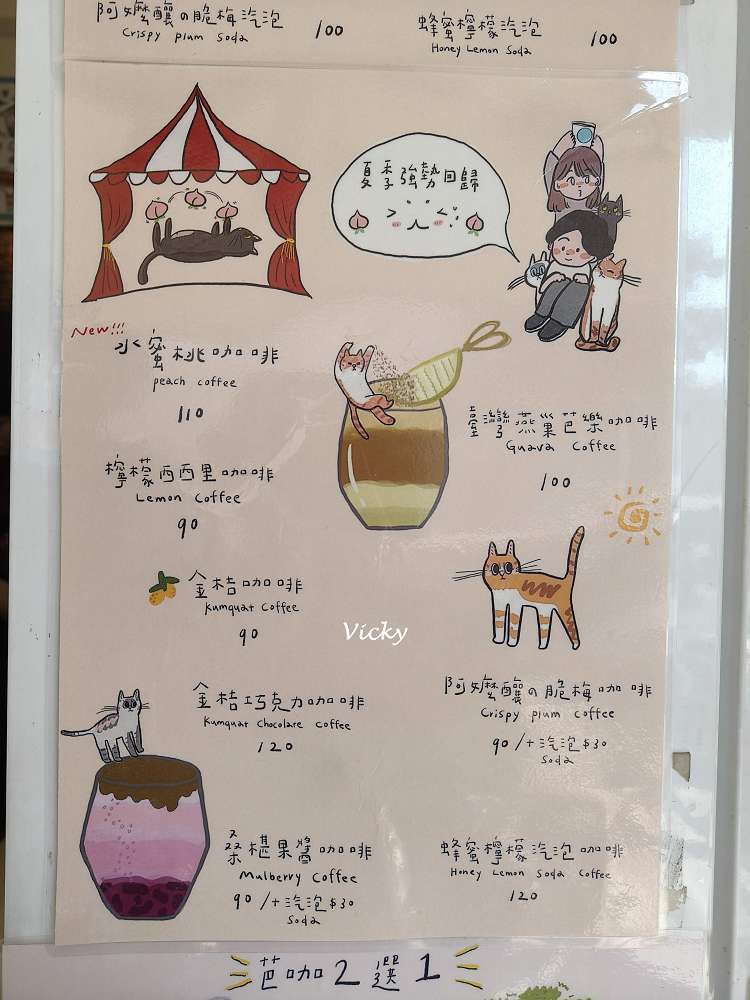 阿嬤釀の脆梅汽泡
Crispy plum Soda
100
蜂蜜檸檬汽泡
Honey Lemon Soda
100
夏季強勢回歸
New!!!
水蜜桃咖啡
peach coffee
110
臺灣燕巢芭樂咖啡
Guava Coffee
100
檸檬西西里咖啡
Lemon Coffee
90
金桔咖啡
Kumquat Coffee
90
Vicky
金桔巧克力咖啡
Kumquat Chocolate Coffee
120
阿嬤釀の脆梅咖啡
Crispy plum Coffee
90/+汽泡$30
Soda
桑椹果醬咖啡
Mulberry Coffee
90/+汽泡$30
Soda
蜂蜜檸檬汽泡咖啡
Honey Lemon Soda Coffee
120
芭咖2選1